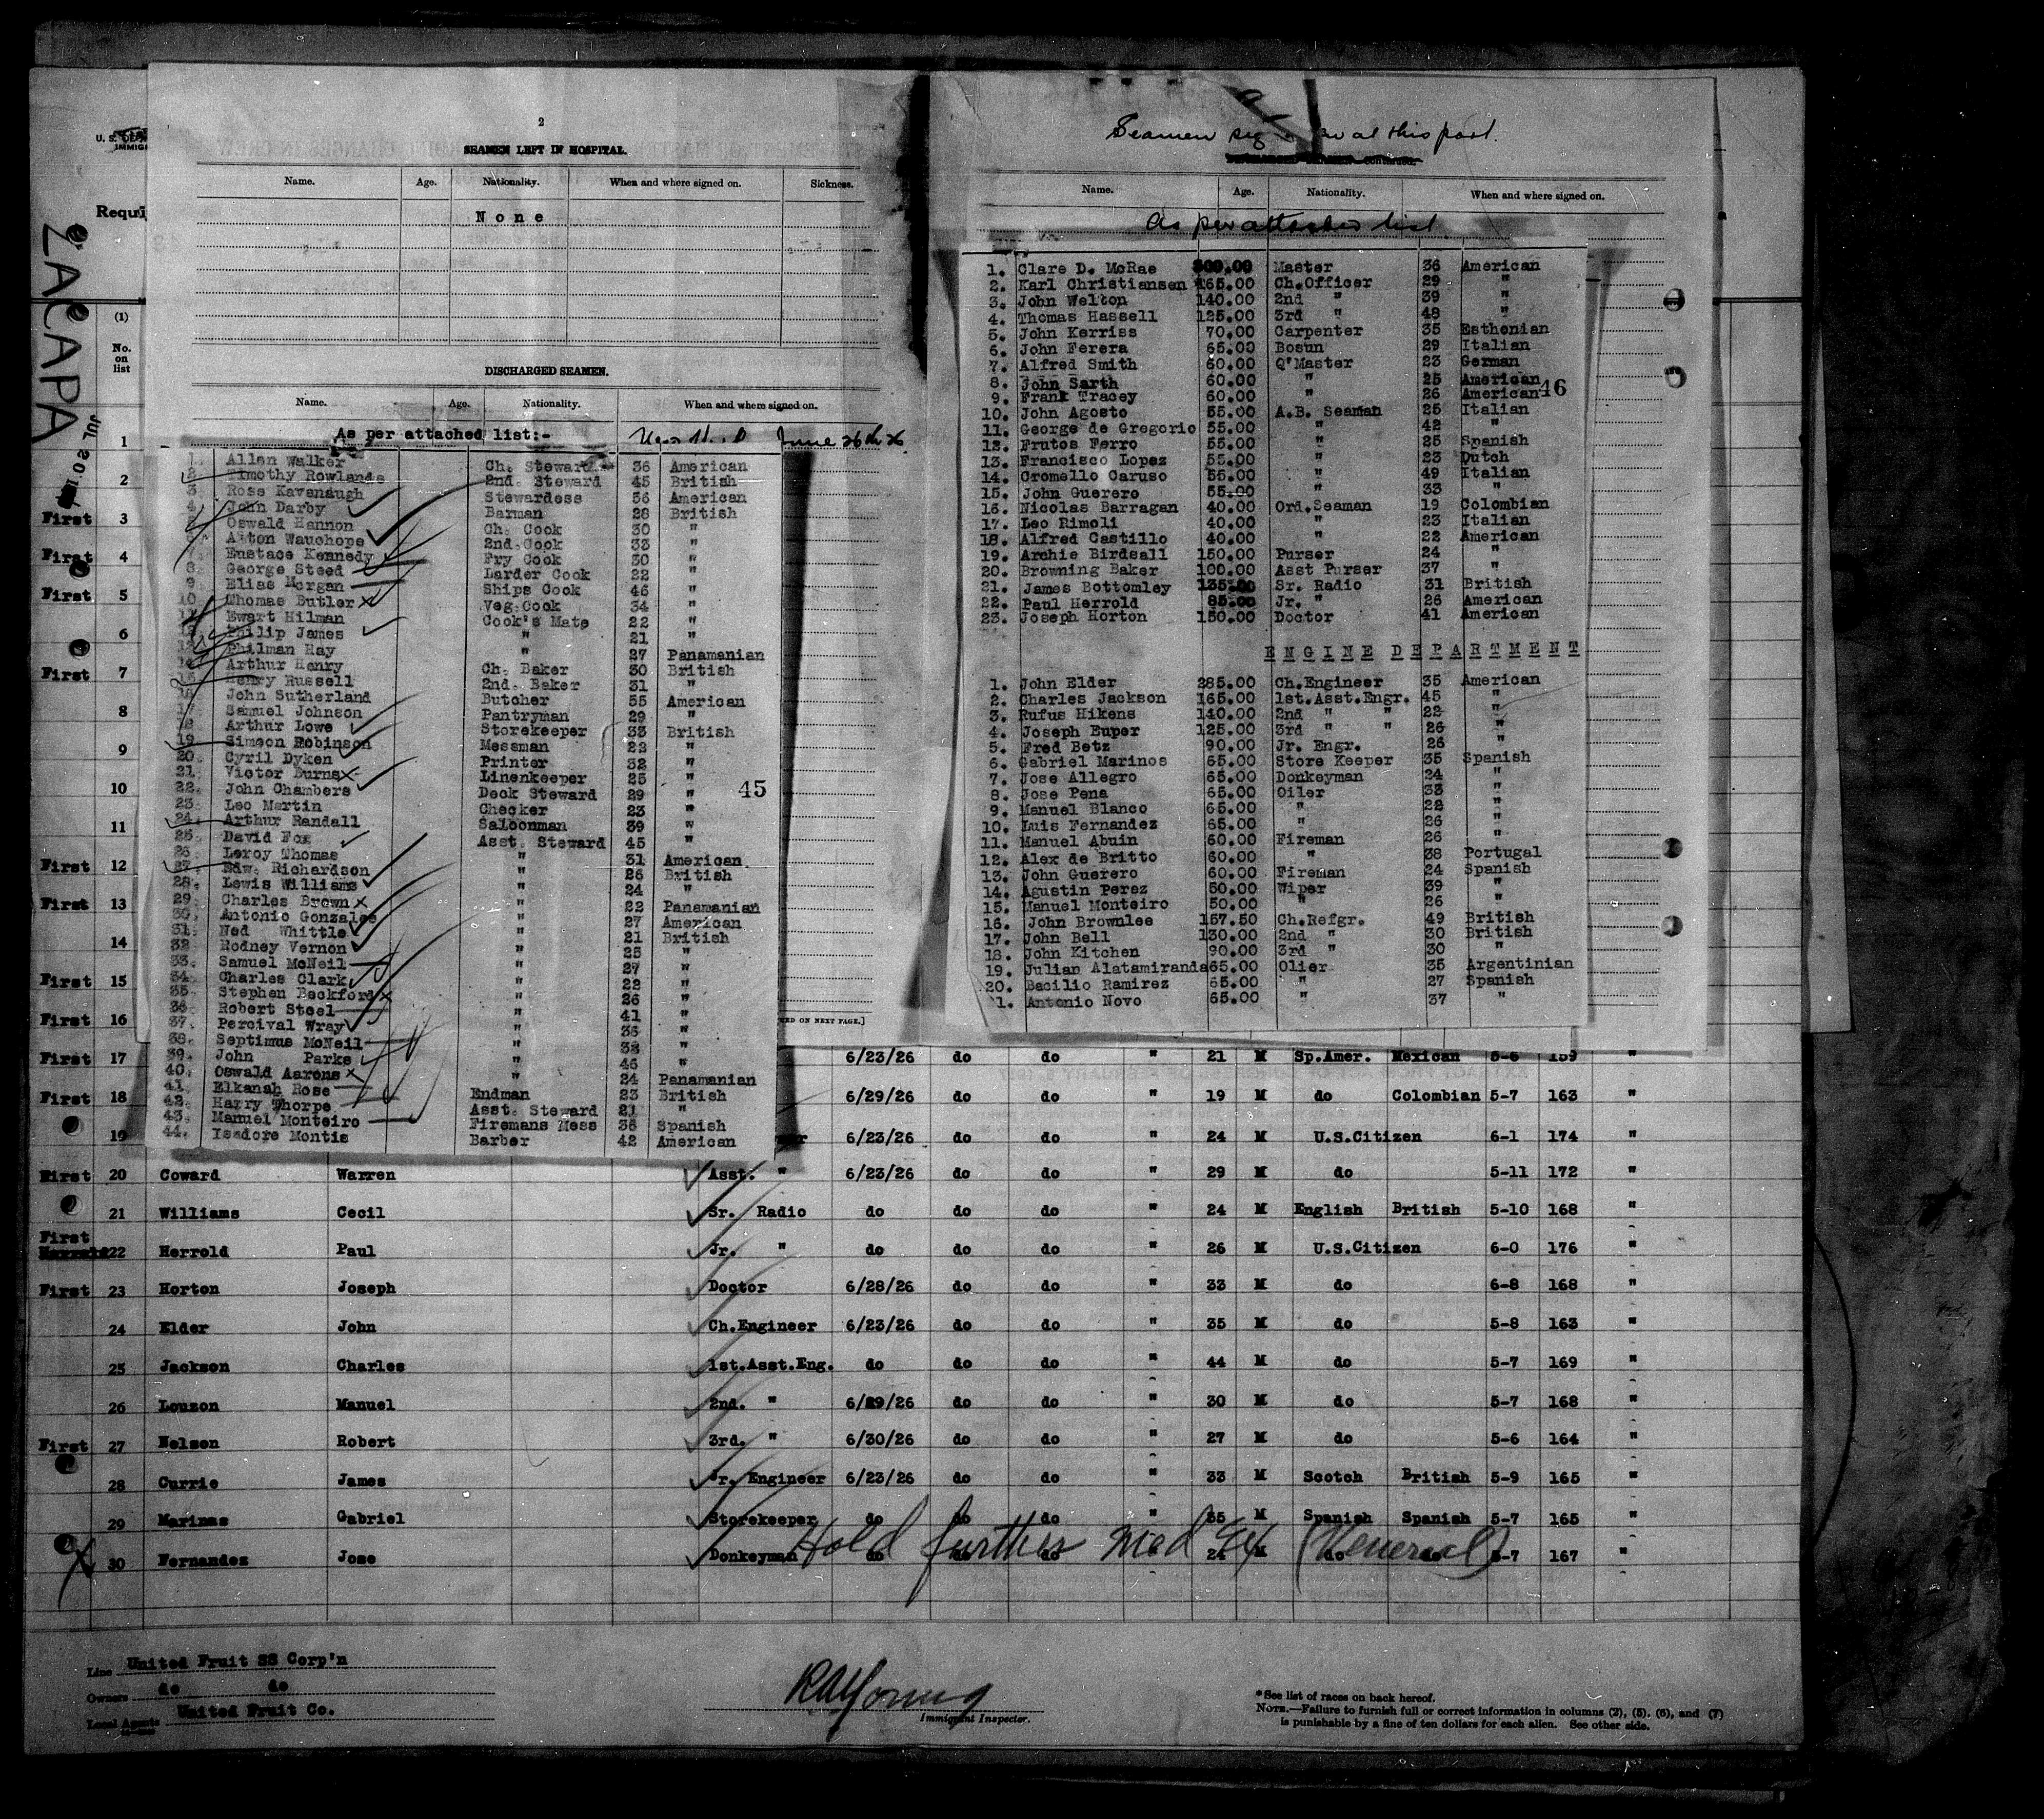 2
SEAMEN LEFT IN HOSPITAL.
Name. Age. Nationality. When and where signed on. Sickness.
None
DISCHARGED SEAMEN.
Name. Age. Nationality. When and where signed on.
As per attached list:- June 26th 26
1. Allen Walker Ch. Steward 36 American
2. Timothy Rowlands 2nd. Steward 45 British
3. Rose Kavenaugh Stewardess 56 American
4. John Darby Barman 28 British
5. Oswald Hannon Ch. Cook 30 "
6. Alton Wauchope 2nd. Cook 33 "
7. Eustace Kennedy Fry Cook 30 "
8. George Steed Larder Cook 22 "
9. Elias Morgan Ships Cook 46 "
10. Thomas Butler Veg. Cook 34 "
11. Ewart Hilman Cook's Mate 22 "
12. Philip James " 21 "
13. Philman Hay " 27 Panamanian
14. Arthur Henry Ch. Baker 30 British
15. Henry Russell 2nd. Baker 31 "
16. John Sutherland Butcher 55 American
17. Samuel Johnson Pantryman 29 "
18. Arthur Lowe Storekeeper 33 British
19. Simeon Robinson Messman 22 "
20. Cyril Dyken Printer 32 "
21. Victor Burns Linenkeeper 25 "
22. John Chambers Deck Steward 29 "
23. Leo Martin Checker 23 "
24. Arthur Randall Saloonman 39 "
25. David Fox Asst. Steward 45 "
26. Leroy Thomas " 31 American
27. Edw. Richardson " 26 British
28. Lewis Williams " 24 "
29. Charles Brown " 22 Panamanian
30. Antonio Gonzales " 27 American
31. Ned Whittle " 21 British
32. Rodney Vernon " 25 "
33. Samuel McNeil " 27 "
34. Charles Clark " 22 "
35. Stephen Beckford " 26 "
36. Robert Steel " 41 "
37. Percival Wray " 35 "
38. Septimus McNeil " 38 "
39. John Parke " 46 "
40. Oswald Aarons " 24 Panamanian
41. Elkanah Rose Endman 23 British
42. Harry Thorpe Asst. Steward 21 "
43. Manuel Monteiro Firemans Mess 38 Spanish
44. Isadore Montis Barber 42 American
45
[ED ON NEXT PAGE.]
Seamen at this port.
Name. Age. Nationality. When and where signed on.
As per attached list
1. Clare D. McRae 300.00 Master 36 American
2. Karl Christiansen 165.00 Ch.Officer 29 "
3. John Welton 140.00 2nd " 39 "
4. Thomas Hassell 125.00 3rd " 48 "
5. John Kerriss 70.00 Carpenter 35 Esthonian
6. John Ferera 65.00 Bosun 29 Italian
7. Alfred Smith 60.00 Q'Master 23 German
8. John Sarth 60.00 " 25 American
9. Frank Tracey 60.00 " 26 American
46
10. John Agosto 55.00 A.B. Seaman 25 Italian
11. George de Gregorio 55.00 " 42 "
12. Frutos Ferro 55.00 " 25 Spanish
13. Francisco Lopez 55.00 " 23 Dutch
14. Cromello Caruso 55.00 " 49 Italian
15. John Guerero 55.00 " 33 "
16. Nicolas Barragan 40.00 Ord.Seaman 19 Colombian
17. Leo Rimoli 40.00 " 23 Italian
18. Alfred Castillo 40.00 " 22 American
19. Archie Birdsall 150.00 Purser 24 "
20. Browning Baker 100.00 Asst Purser 37 "
21. James Bottomley 135.00 Sr. Radio 31 British
22. Paul Herrold 85.00 Jr. " 26 American
23. Joseph Horton 150.00 Doctor 41 American
ENGINE DEPARTMENT
1. John Elder 285.00 Ch.Engineer 35 American
2. Charles Jackson 165.00 1st.Asst.Engr. 45 "
3. Rufus Hikens 140.00 2nd " " 22 "
4. Joseph Euper 125.00 3rd " " 26 "
5. Fred Betz 90.00 Jr. Engr. 26 "
6. Gabriel Marinos 65.00 Store Keeper 35 Spanish
7. Jose Allegro 65.00 Donkeyman 24 "
8. Jose Pena 65.00 Oiler 33 "
9. Manuel Blanco 65.00 " 22 "
10. Luis Fernandez 65.00 " 26 "
11. Manuel Abuin 60.00 Fireman 26 "
12. Alex de Britto 60.00 " 38 Portugal
13. John Guerero 60.00 Fireman 24 Spanish
14. Agustin Perez 50.00 Wiper 39 "
15. Manuel Monteiro 50.00 " 26 "
16. John Brownlee 157.50 Ch.Refgr. 49 British
17. John Bell 130.00 2nd " 30 British
18. John Kitchen 90.00 3rd " 30 "
19. Julian Alatamiranda 65.00 Olier 35 Argentinian
20. Bacilio Ramirez 65.00 " 27 Spanish
21. Antonio Novo 65.00 " 37 "
ZACAPA
Requi
(1)
No. on list
1
2
First 3
First 4
First 5
6
First 7
8
9
10
11
First 12
First 13
14
First 15
First 16
First 17 6/23/26 do do " 21 M Sp.Amer. Mexican 5-6 159 "
First 18 6/29/26 do do " 19 M do Colombian 5-7 163 "
19 6/23/26 do do " 24 M U.S.Citizen 6-1 174 "
First 20 Coward Warren Asst. " 6/23/26 do do " 29 M do 5-11 172 "
21 Williams Cecil Sr. Radio do do do " 24 M English British 5-10 168 "
First 22 Herrold Paul Jr. " do do do " 26 M U.S.Citizen 6-0 176 "
First 23 Horton Joseph Doctor 6/28/26 do do " 33 M do 6-8 168 "
24 Elder John Ch.Engineer 6/23/26 do do " 35 M do 5-8 163 "
25 Jackson Charles 1st.Asst.Eng. do do do " 44 M do 5-7 169 "
26 Louzon Manuel 2nd. " 6/29/26 do do " 30 M do 5-7 168 "
First 27 Nelson Robert 3rd. " 6/30/26 do do " 27 M do 5-6 164 "
28 Currie James Jr. Engineer 6/23/26 do do " 33 M Scotch British 5-9 165 "
29 Marinas Gabriel Storekeeper do do do " 35 M Spanish Spanish 5-7 165 "
30 Fernandez Jose Donkeyman do do do " 24 M do do 5-7 167 "
Hold further Med Ex (Venereal)
Line United Fruit SS Corp'n
Owners do do
Local Agents United Fruit Co.
RMYoung
Immigrant Inspector.
*See list of races on back hereof.
NOTE.—Failure to furnish full or correct information in columns (2), (5), (6), and (7)
is punishable by a fine of ten dollars for each alien. See other side.